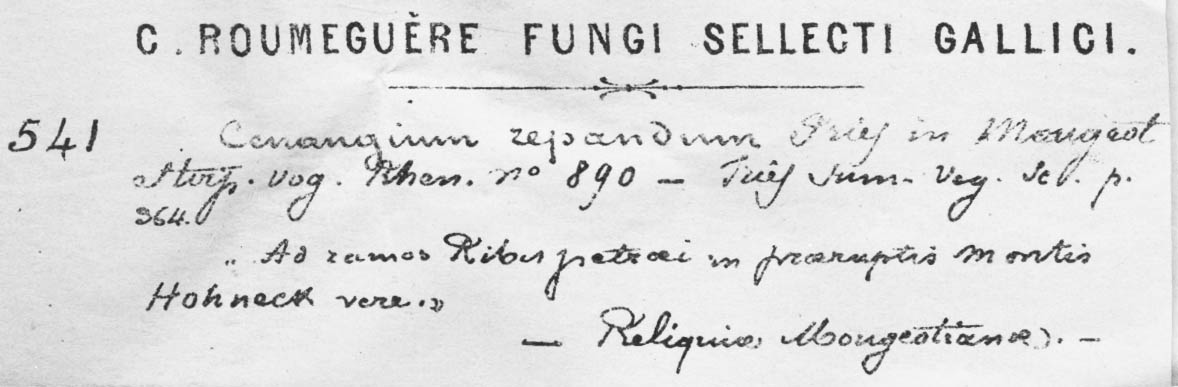 C. ROUMEGUÈRE FUNGI SELLECTI GALLICI.
541 Cenangium repandum Fries in Mougeot
Stirp. vog. Rhen. no 890 — Fries Sum. Veg. Sc. p.
364.
„ Ad ramos Ribis petræi in præruptis montis
Hohneck vere.»
— Reliquiæ Mougeotianæ. —